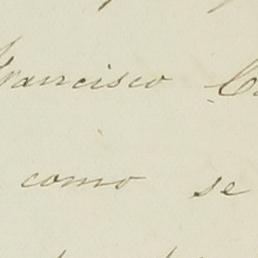 Francisco
como se